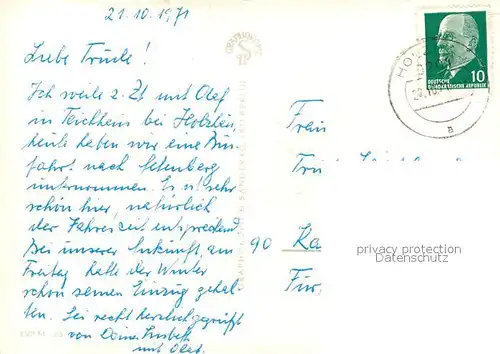 21.10.1971
Liebe Trude!
Ich weile z. Zt. mit Olaf
in Teichheim bei Holzhau,
heute haben wir eine Bus-
fahrt nach Altenberg
unternommen. Es ist sehr
schön hier, natürlich
der Jahreszeit entsprechend.
Bei unserer Ankunft, am
Freitag hatte der Winter
schon seinen Einzug gehal-
ten. Sei recht herzlich gegrüßt
von Deiner Lisbeth
mit Olaf.
10
DEUTSCHE
DEMOKRATISCHE REPUBLIK
HO
a
90 Ka
privacy protection
Datenschutz